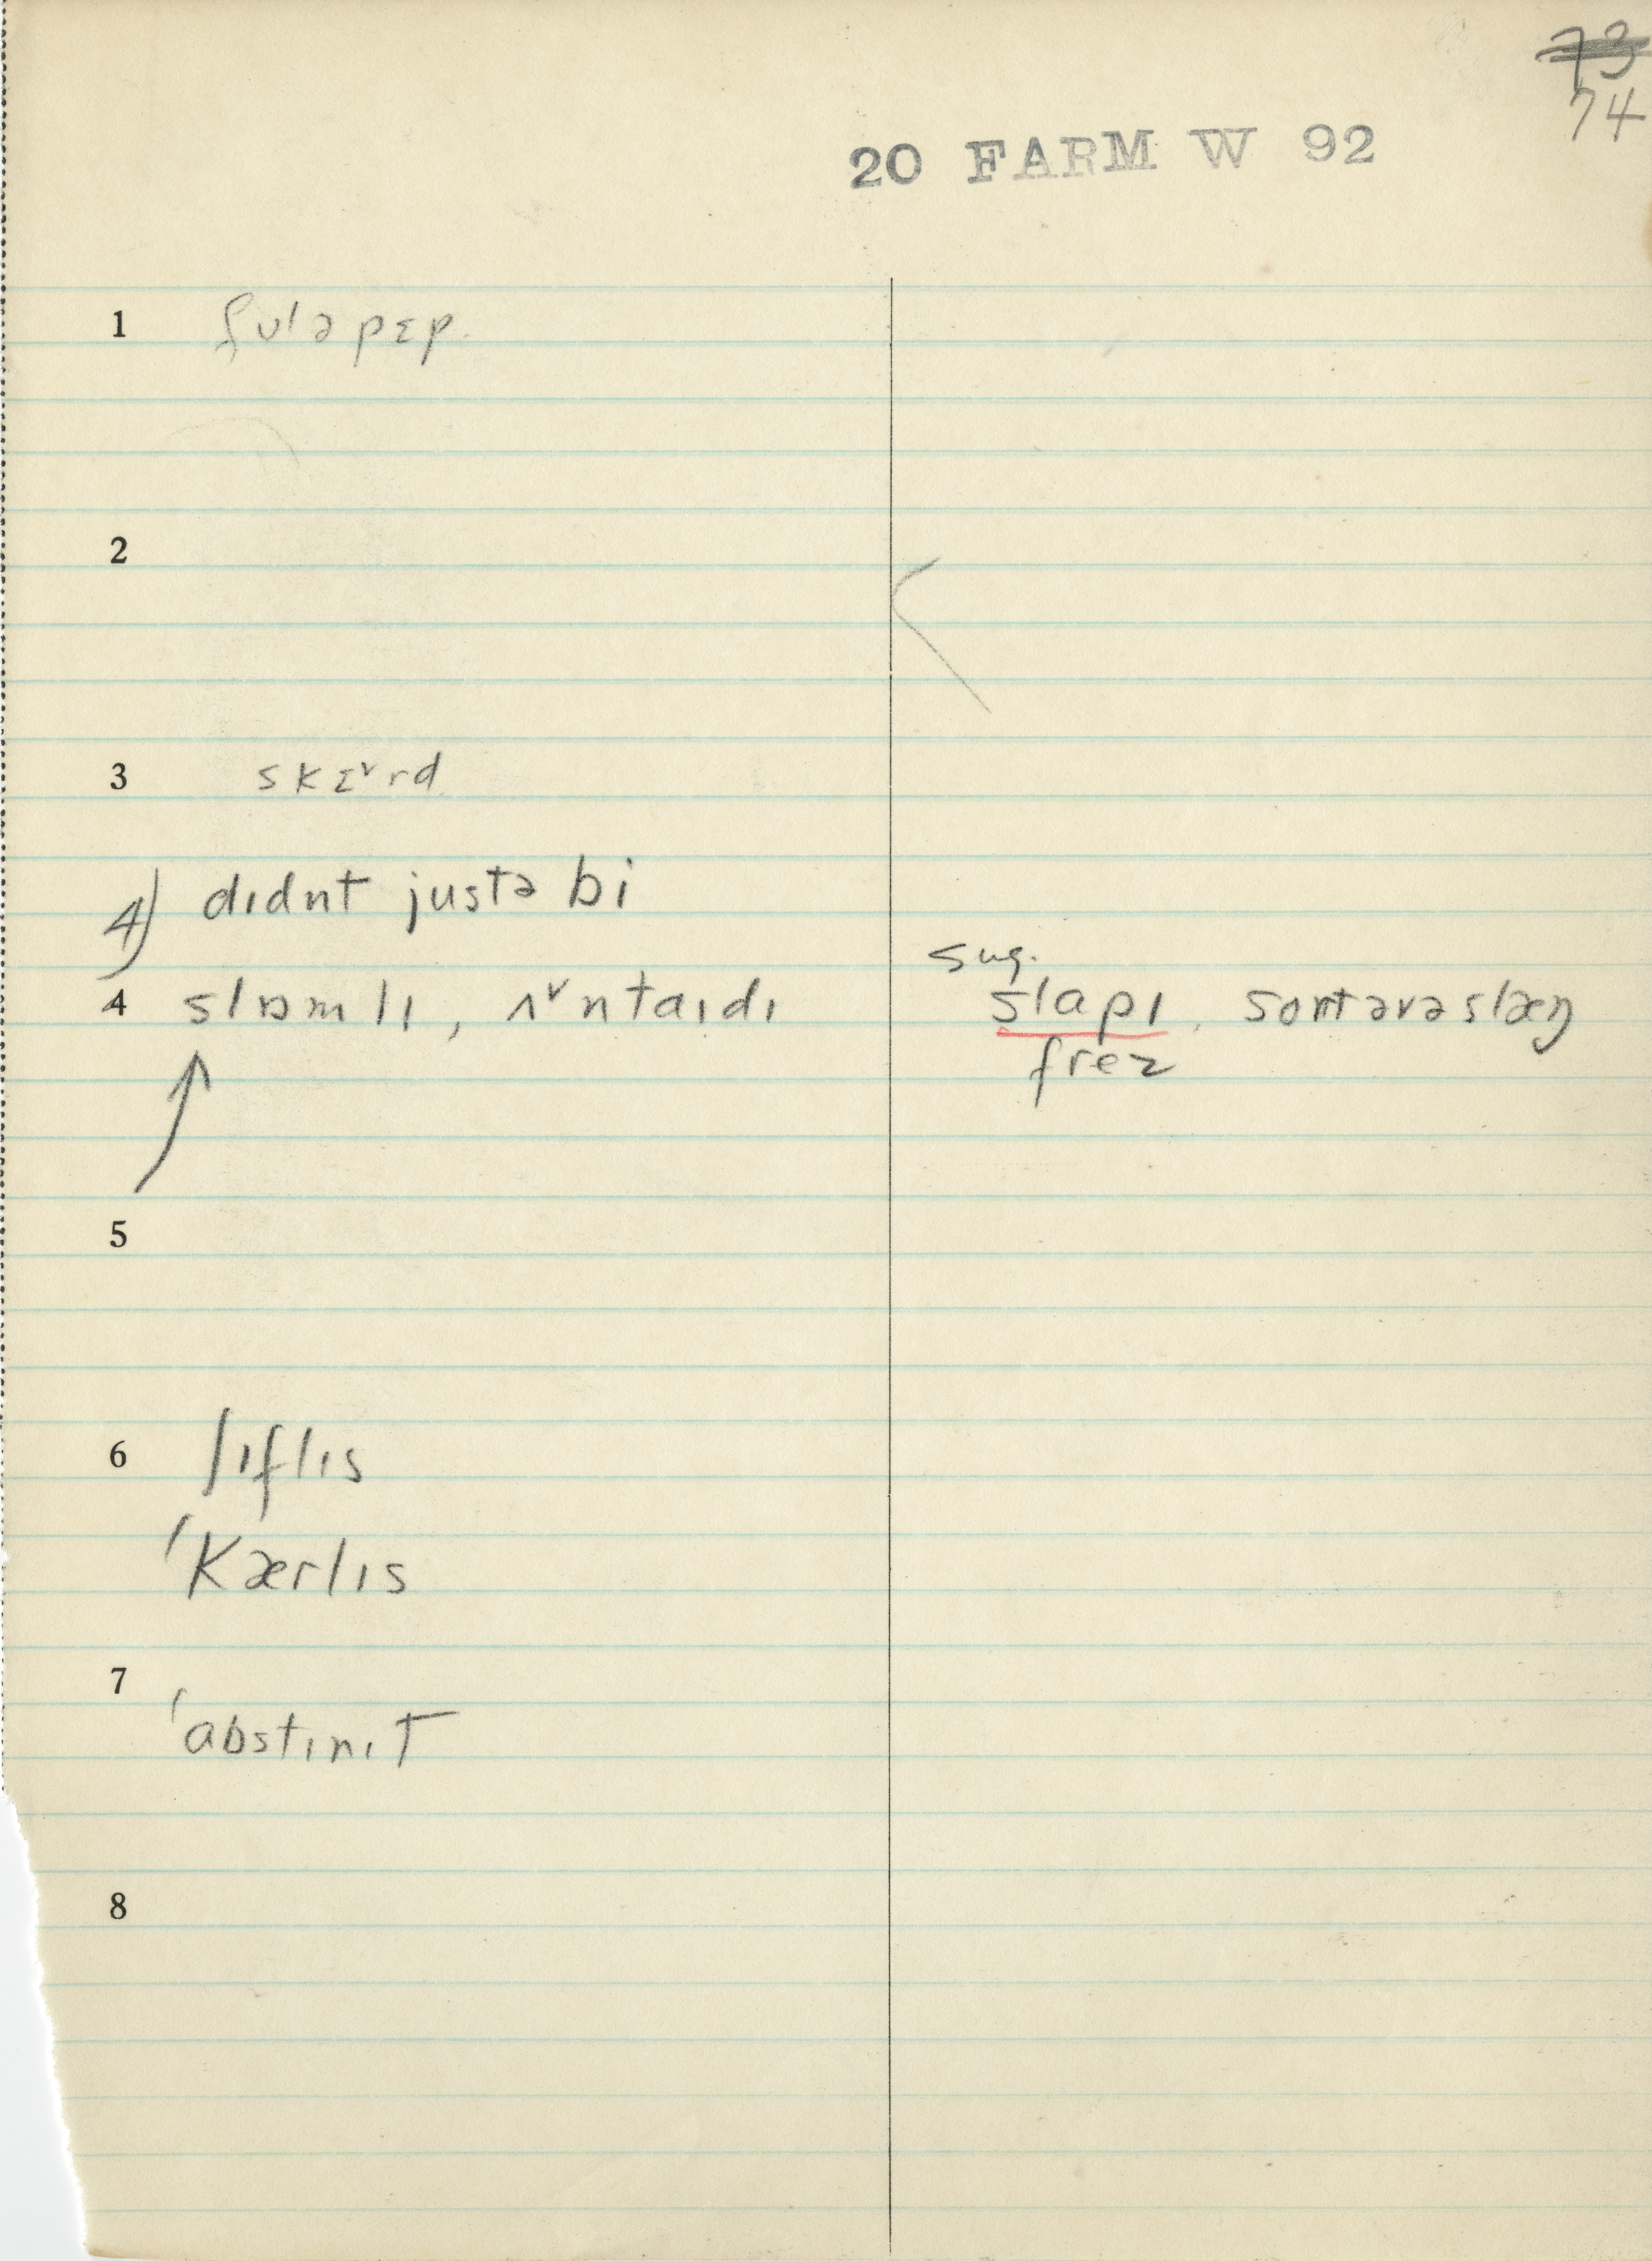 73
74
20 FARM W 92
1 fʊlə pɛp.
2
3 skɛ˅rd
4) dɪdnt justə bi
4 slɒmlɪ, ʌ˅ntaɪdɪ sug. slapɪ, sortəvəslæŋ
frez
5
6 lɪflɪs
ˈkærlɪs
7 ˈabstɪnɪt
8